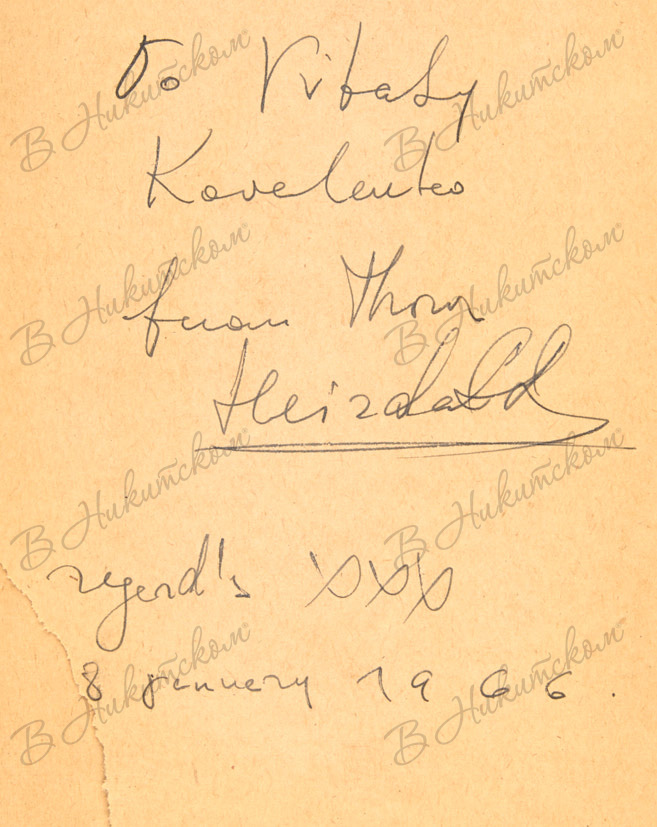 To Vitaly
Kovalenko
from Thor
Heyerdahl
regard's xxx
8 january 1966.
В Никитском
В Никитском
В Никитском
В Никитском
В Никитском
В Никитском
В Никитском
В Никитском